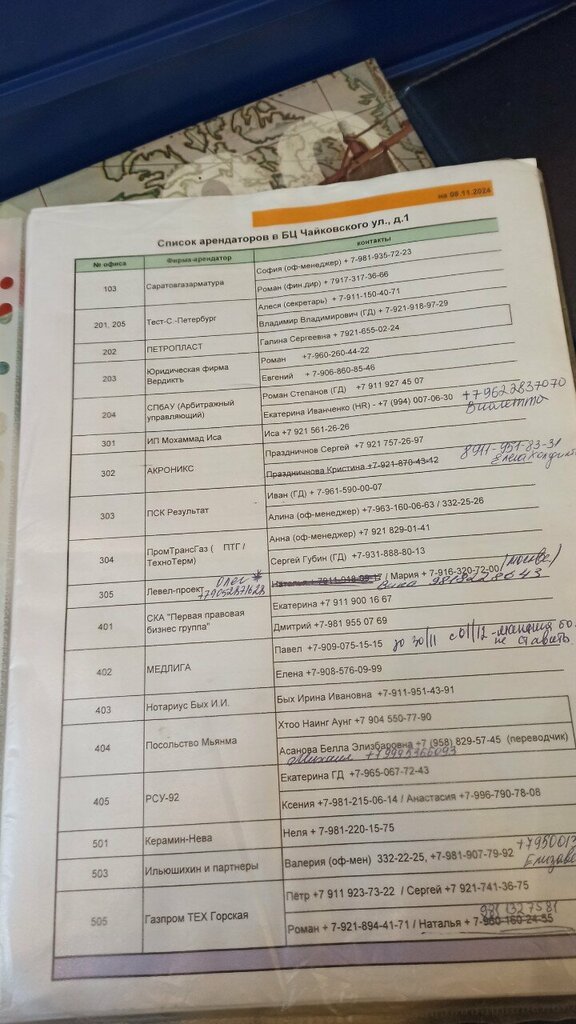 на 08.11.2024
Список арендаторов в БЦ Чайковского ул., д.1
№ офиса Фирма-арендатор контакты
103 Саратовгазарматура София (оф-менеджер) + 7-981-935-72-23
Роман (фин.дир) + 7917-317-36-66
201, 205 Тест-С.-Петербург Алеся (секретарь) +7-911-150-40-71
Владимир Владимирович (ГД) + 7-921-918-97-29
202 ПЕТРОПЛАСТ Галина Сергеевна + 7921-655-02-24
203 Юридическая фирма Вердиктъ Роман +7-960-260-44-22
Евгений + 7-906-860-85-46
204 СПбАУ (Арбитражный управляющий) Роман Степанов (ГД) +7 911 927 45 07
Екатерина Иванченко (HR) - +7 (994) 007-06-30 +79622837070
Виолетта
301 ИП Мохаммад Иса Иса +7 921 561-26-26
302 АКРОНИКС Праздничнов Сергей +7 921 757-26-97 8911-951-83-31
Праздничнова Кристина +7-921-870-43-12 Елена
303 ПСК Результат Иван (ГД) + 7-961-590-00-07
Алина (оф-менеджер) +7-963-160-06-63 / 332-25-26
304 ПромТрансГаз ( ПТГ / ТехноТерм) Анна (оф-менеджер) +7 921 829-01-41
Сергей Губин (ГД) +7-931-888-80-13
305 Левел-проект Олег Наталья / Мария + 7-916-320-72-00 /
401 СКА "Первая правовая бизнес группа" Екатерина +7 911 900 16 67
Дмитрий +7-981 955 07 69
402 МЕДЛИГА Павел +7-909-075-15-15 до 30/11 с 01/12 -
не ставить
Елена +7-908-576-09-99
403 Нотариус Бых И.И. Бых Ирина Ивановна +7-911-951-43-91
404 Посольство Мьянма Хтоо Наинг Аунг +7 904 550-77-90
Асанова Белла Элизбаровна +7 (958) 829-57-45 (переводчик)
Михаил
405 РСУ-92 Екатерина ГД +7-965-067-72-43
Ксения +7-981-215-06-14 / Анастасия +7-996-790-78-08
501 Керамин-Нева Неля + 7-981-220-15-75
503 Ильюшихин и партнеры Валерия (оф-мен) 332-22-25, +7-981-907-79-92 +7950013
505 Газпром ТЕХ Горская Пётр +7 911 923-73-22 / Сергей +7 921-741-36-75
Роман + 7-921-894-41-71 / Наталья + 7-950-160-24-55